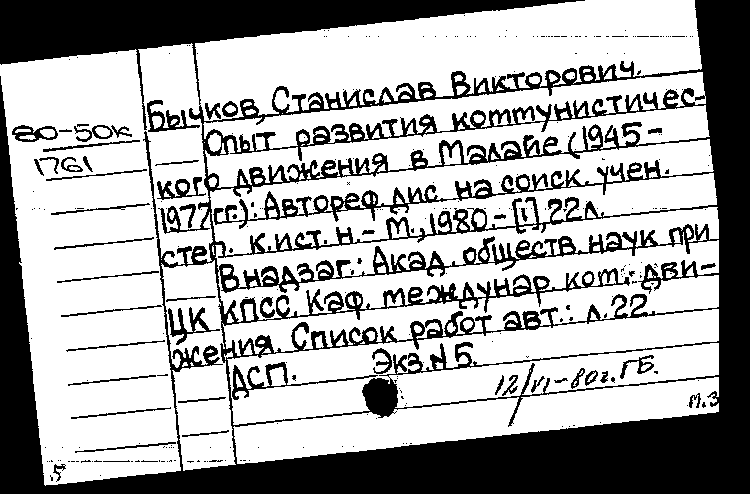 Бычков, Станислав Викторович.
80-50к
1761
Опыт развития коммунистичес-
кого движения в Малайе (1945-
1977гг.): Автореф. дис. на соиск. учен.
степ. к.ист.н.- М., 1980.- [1], 22л.
В надзаг.: Акад. обществ. наук при
ЦК КПСС. Каф. междунар. ком. дви-
жения. Список работ авт.: л.22.
ДСП. Экз.N5.
12/VI-80г. ГБ.
М.З
5